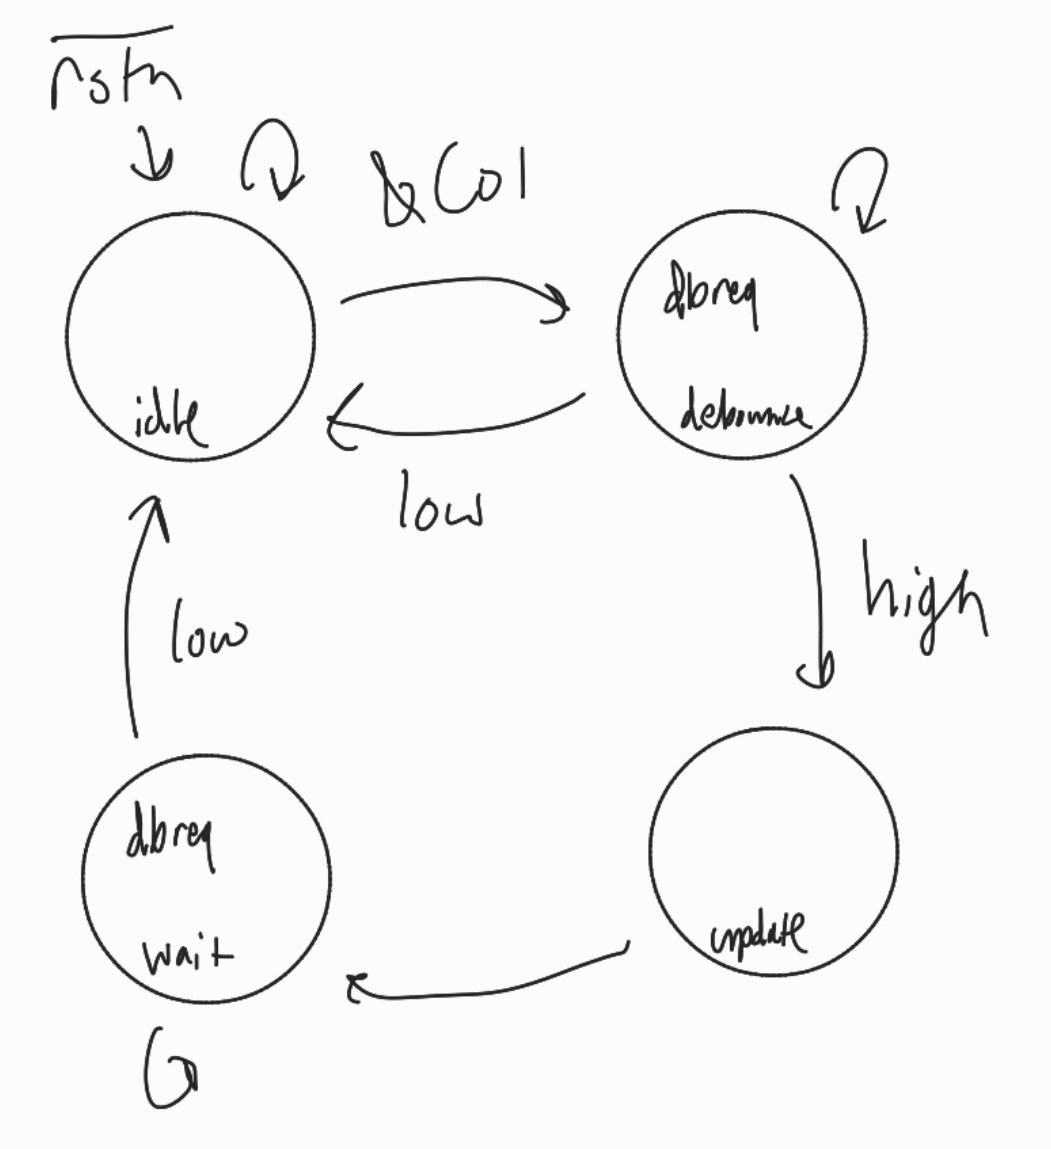 rstn
&Col
dbreq
debounce
idle
low
high
low
dbreq
wait
update